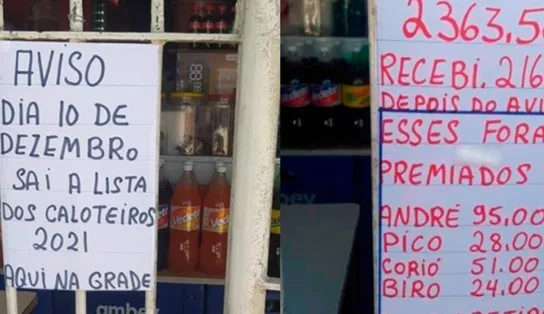 AVISO
DIA 10 DE
DEZEMBRO
SAI A LISTA
DOS CALOTEIROS
2021
AQUI NA GRADE
Vedete
ambev
2363.5
RECEBI. 216
DEPOIS DO AVI
ESSES FORA
PREMIADOS
ANDRÉ 95.00
PICO 28.00
CORIÓ 51.00
BIRO 24.00